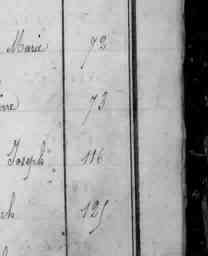 Marie 72
rre 73
Joseph 116
ph 125